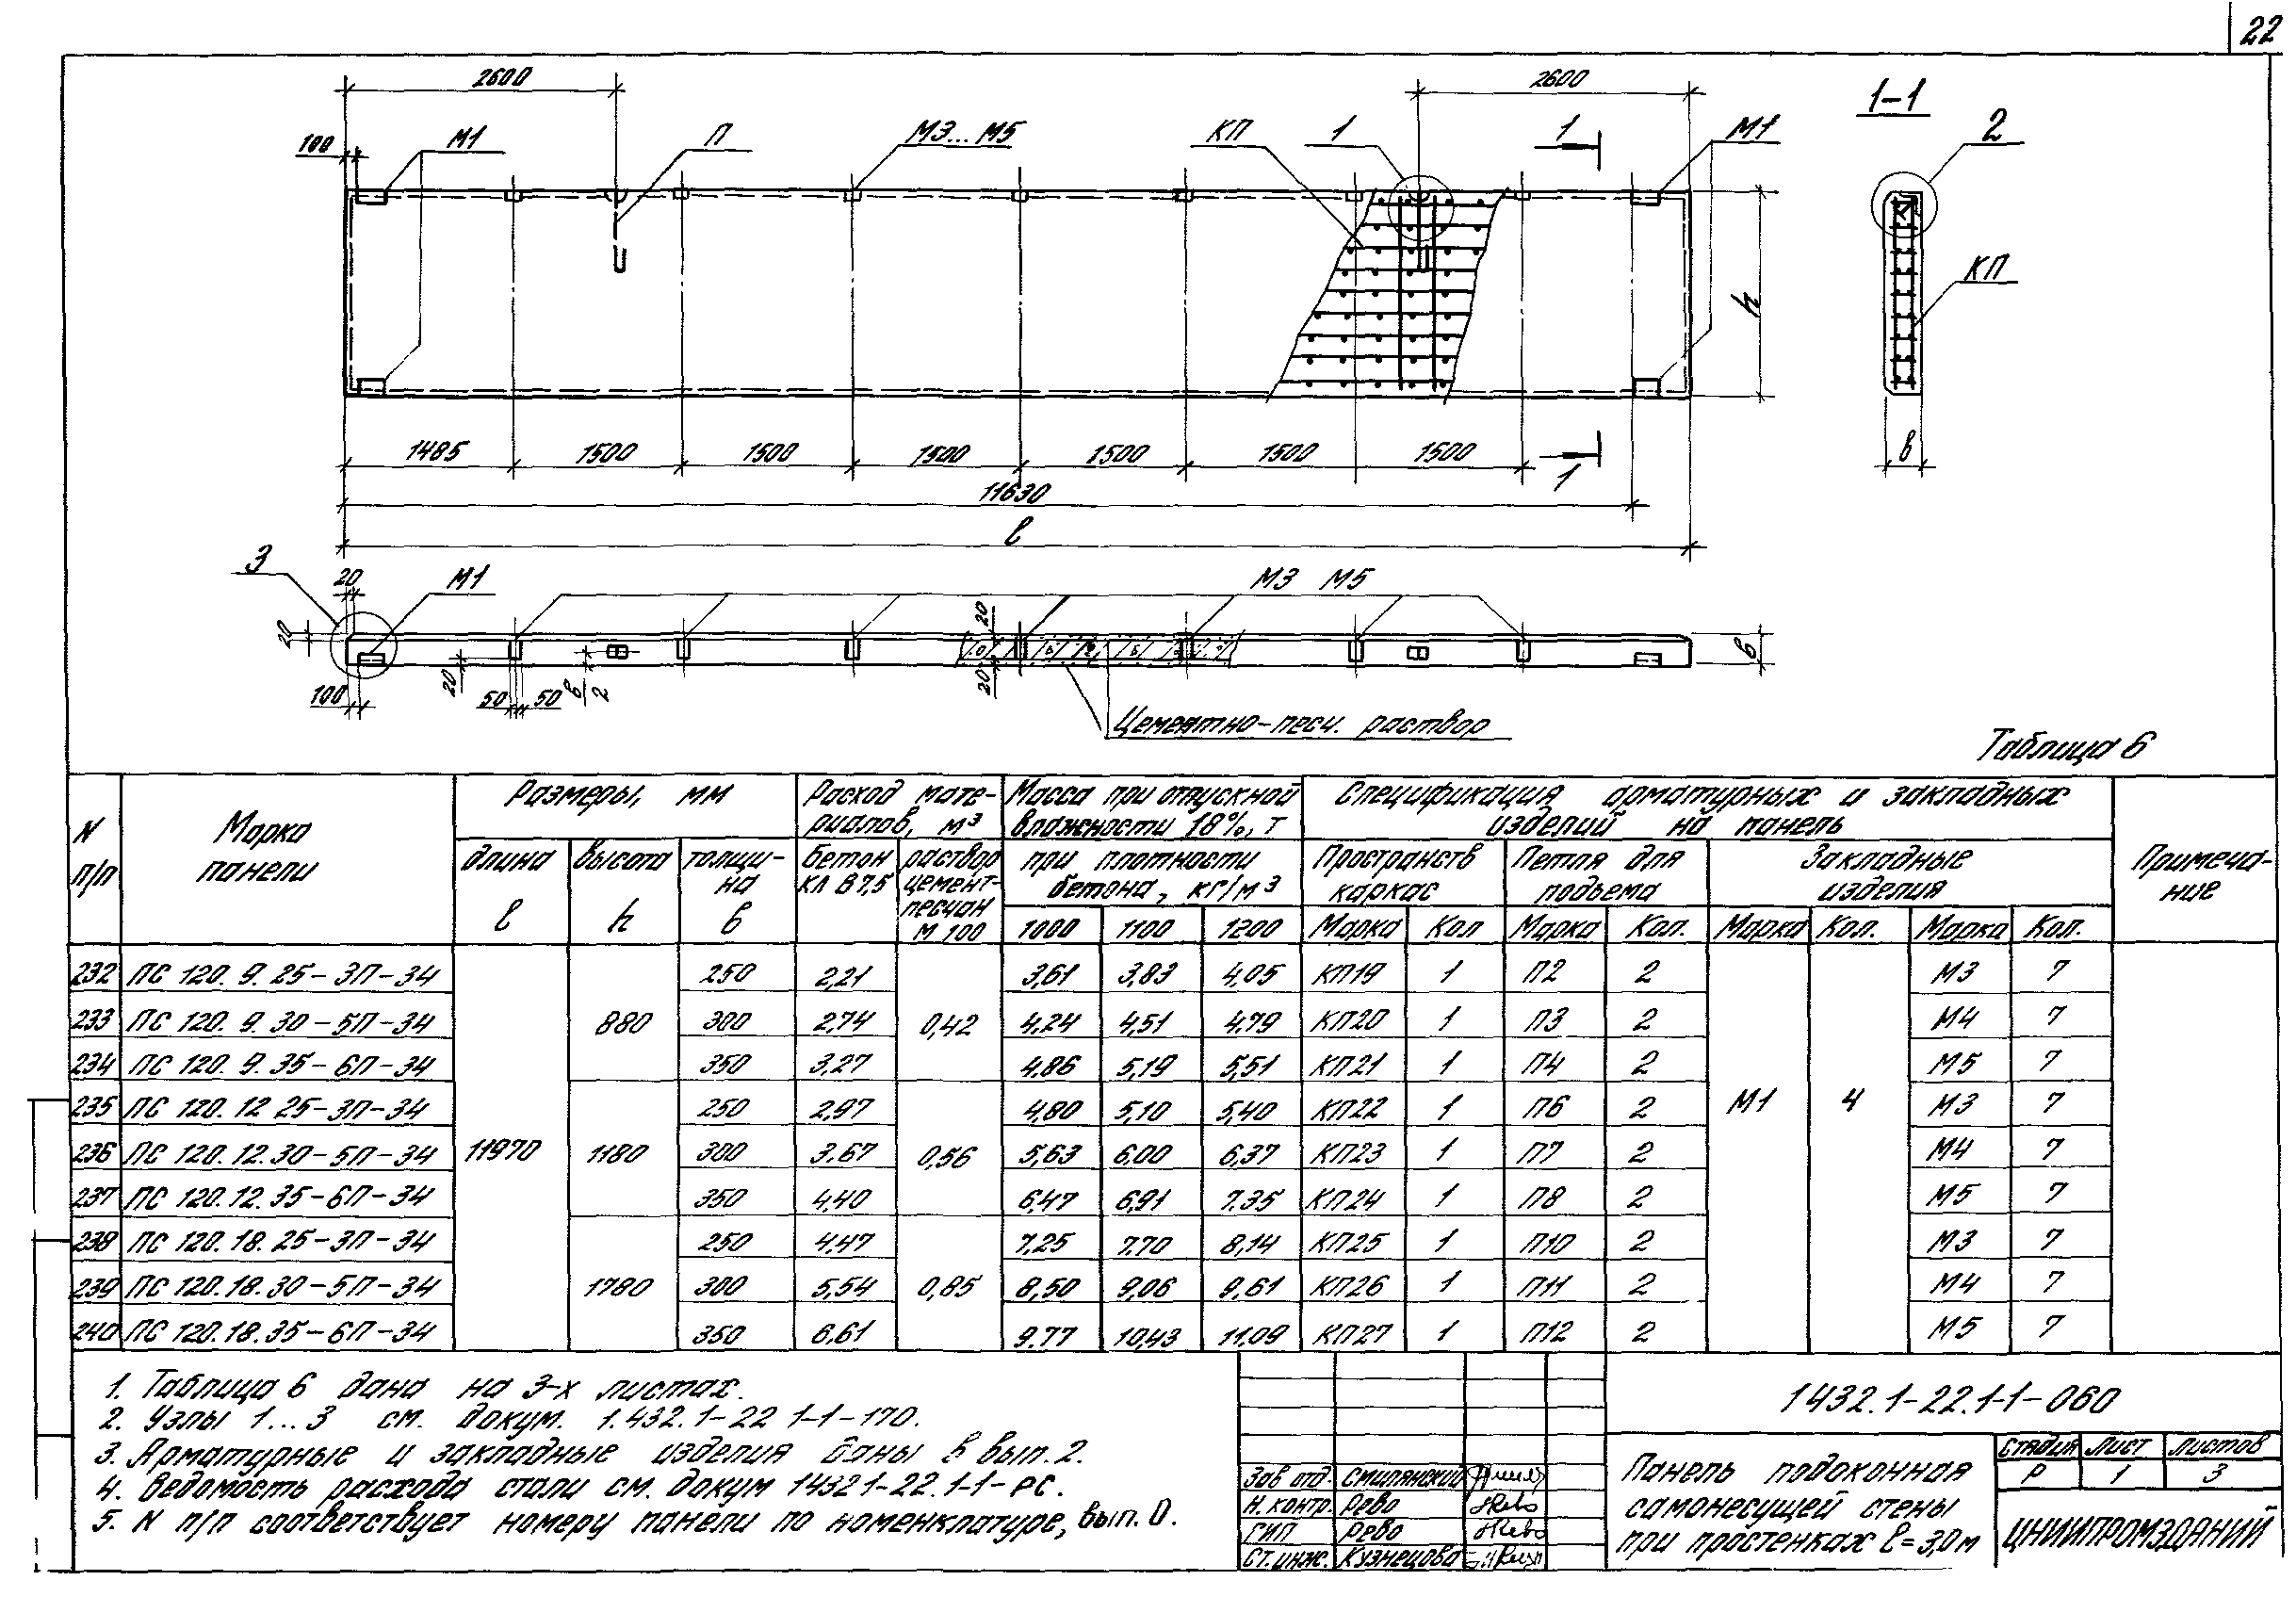 22
2600
2600
1-1
100
М1
П
М3...М5
КП
1
1
М1
2
h
КП
1485
1500
1500
1500
1500
1500
1500
1
в
11630
ℓ
3
20
М1
М3 М5
20
20
20
в
100
20
50
50
в/2
20
Цементно-песч. раствор
Таблица 6
N п/п
Марка панели
Размеры, мм
Расход материалов, м³
Масса при отпускной влажности 18%, т
Спецификация арматурных и закладных изделий на панель
Примечание
длина ℓ
высота h
толщина в
бетон кл В7,5
раствор цемент-песчан М 100
при плотности бетона, кг/м³
Пространств каркас
Петля для подъема
Закладные изделия
1000 1100 1200 Марка Кол Марка Кол. Марка Кол. Марка Кол.
232 ПС 120.9.25-3П-34 250 2,21 3,61 3,83 4,05 КП19 1 П2 2 М3 7
233 ПС 120.9.30-5П-34 880 300 2,74 0,42 4,24 4,51 4,79 КП20 1 П3 2 М4 7
234 ПС 120.9.35-6П-34 350 3,27 4,86 5,19 5,51 КП21 1 П4 2 М5 7
235 ПС 120.12 25-3П-34 250 2,97 4,80 5,10 5,40 КП22 1 П6 2 М1 4 М3 7
236 ПС 120.12.30-5П-34 11970 1180 300 3.67 0,56 5,63 6,00 6,37 КП23 1 П7 2 М4 7
237 ПС 120.12.35-6П-34 350 4,40 6,47 6,91 7.35 КП24 1 П8 2 М5 7
238 ПС 120.18.25-3П-34 250 4,47 7,25 7.70 8,14 КП25 1 П10 2 М3 7
239 ПС 120.18.30-5П-34 1780 300 5,54 0,85 8,50 9,06 9,61 КП26 1 П11 2 М4 7
240 ПС 120.18.35-6П-34 350 6,61 9.77 10,43 11,09 КП27 1 П12 2 М5 7
1. Таблица 6 дана на 3-х листах.
2. Узлы 1...3 см. докум. 1.432.1-22 1-1-170.
3. Арматурные и закладные изделия даны в вып. 2.
4. Ведомость расхода стали см. докум 1432 1-22.1-1-РС.
5. N п/п соответствует номеру панели по номенклатуре, вып. 0.
1432.1-22.1-1-060
Зав отд. Смилянский
Н. контр. Рево
ГИП Рево
Ст. инж. Кузнецова
Панель подоконная
самонесущей стены
при простенках ℓ=3,0м
Стадия Лист Листов
Р 1 3
ЦНИИПРОМЗДАНИЙ